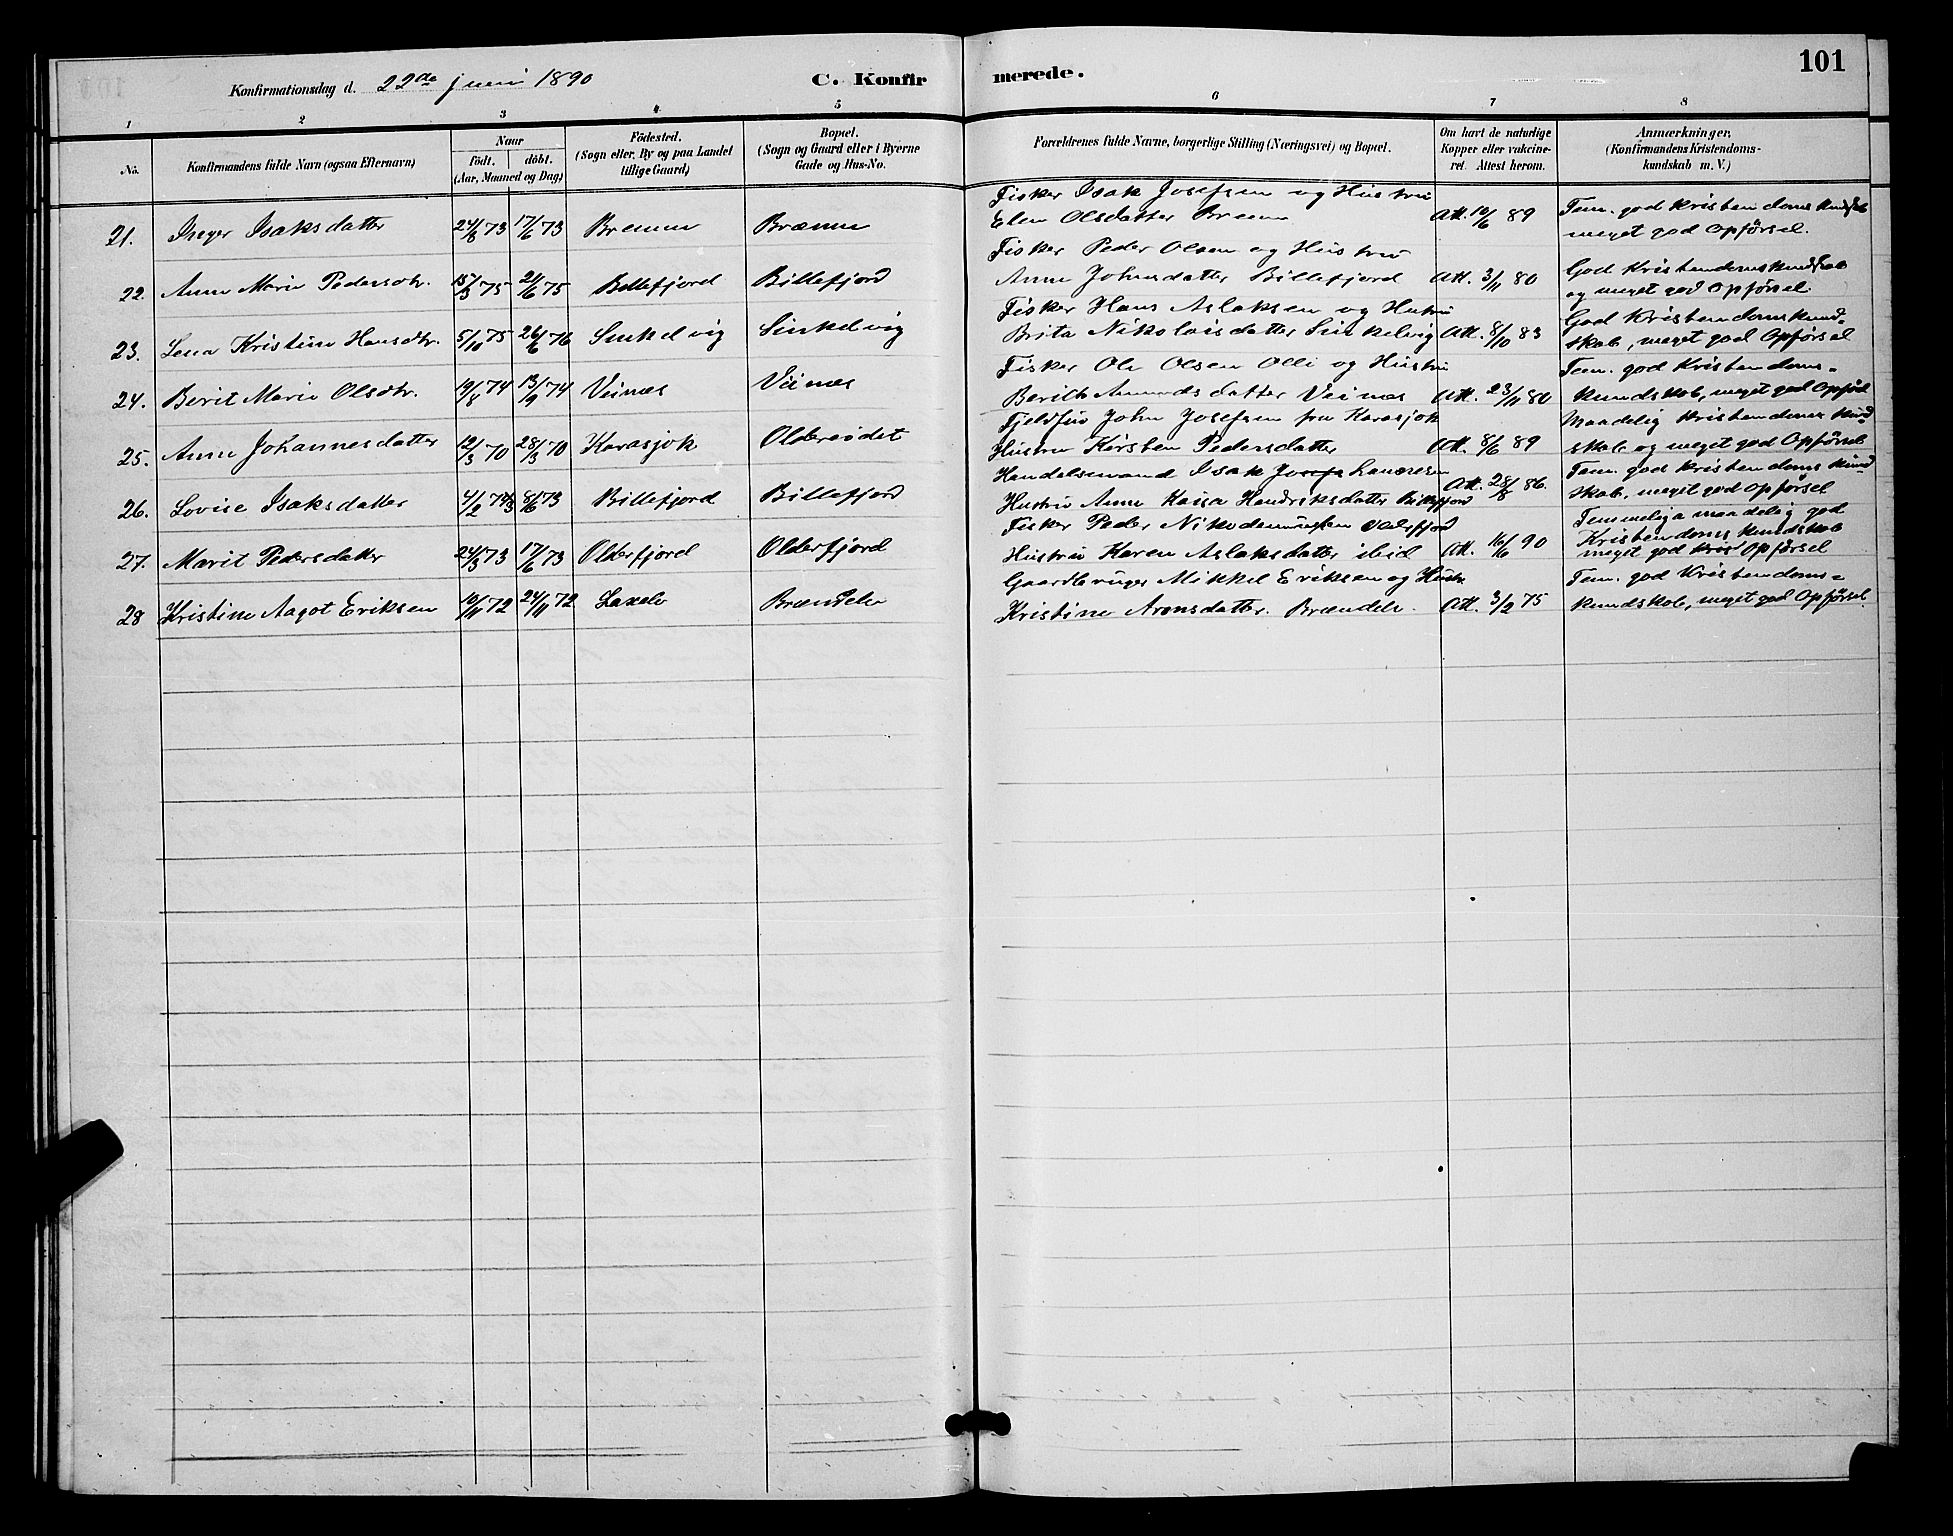 101
Konfirmationsdag d. 22de juni 1890 C. Konfirmerede.
1 2 3 4 5 6 7 8
No. Konfirmandens fulde Navn (ogsaa Efternavn) Naar født. døbt. (Aar, Maaned og Dag) Födested. (Sogn eller By og paa Landet tillige Gaard) Bopæl. (Sogn og Gaard eller i Byerne Gade og Hus-No. Forældrenes fulde Navne, borgerlige Stilling (Næringsvei) og Bopæl. Om havt de naturlige Kopper eller vakcineret. Attest herom. Anmærkninger, (Konfirmandens Kristendomskundskab m. V.)
Fisker Isak Josefsen og Hustru
21. Inger Isaksdatter 24/8 73 17/6 73 Brenna Brænna Elen Olsdatter Brenna Att. 10/6 89 Tem. god Kristendoms kundskab meget god Opførsel.
Fisker Peder Olsen og Hustru
22. Anne Marie Pedersdtr. 15/3 75 24/6 75 Billefjord Billefjord Anne Johnsdatter Billefjord Att. 3/11 80 God Kristendomskundskab og meget god Opførsel
Fisker Hans Aslaksen og Hustru
23. Lena Kristine Hansdtr. 5/10 75 26/6 76 Sinkelvig Sinkelvig Brita Nikolaisdatter Sinkelvig Att. 8/10 83 God Kristendomskund-skab, meget god Opførsel
Fisker Ole Olsen Olli og Hustru
24. Berit Marie Olsdtr. 19/8 74 13/9 74 Veines Veines Berith Amundsdatter Veines Att. 23/11 80 Tem. god Kristendoms-kundskab, meget god Opførsel
Fjeldfin John Josefsen fra Karasjok
25. Anne Johannesdatter 12/3 70 28/3 70 Karasjok Oldereidet Hustru Kirsten Pedersdatter Att. 8/6 89 Maadelig Kristendoms kund-skab og meget god Opførsel
Handelsmand Isak Josefs Lauresen
26. Lovise Isaksdatter 4/2 73 8/6 73 Billefjord Billefjord Hustru Anne Kaisa Hendriksdatter Billefjord Att. 28/8 86. Tem. god Kristendoms kund-skab, meget god Opførsel
Fisker Peder Nikodemussen Olderfjord
27. Marit Pedersdatter 24/3 73 17/6 73 Olderfjord Olderfjord Hustru Karen Aslaksdatter ibid Att. 16/6 90 Temmelig maadelig god Kristendoms kundskab meget god Opførsel
Gaardbruger Mikkel Eriksen og Hustr.
28 Kristine Aagot Eriksen 10/11 72 24/11 72 Laxelv Brændelv Kristine Aronsdatter. Brændelv. Att. 3/2 75 Tem. god Kristendoms-kundskab, meget god Opførsel.